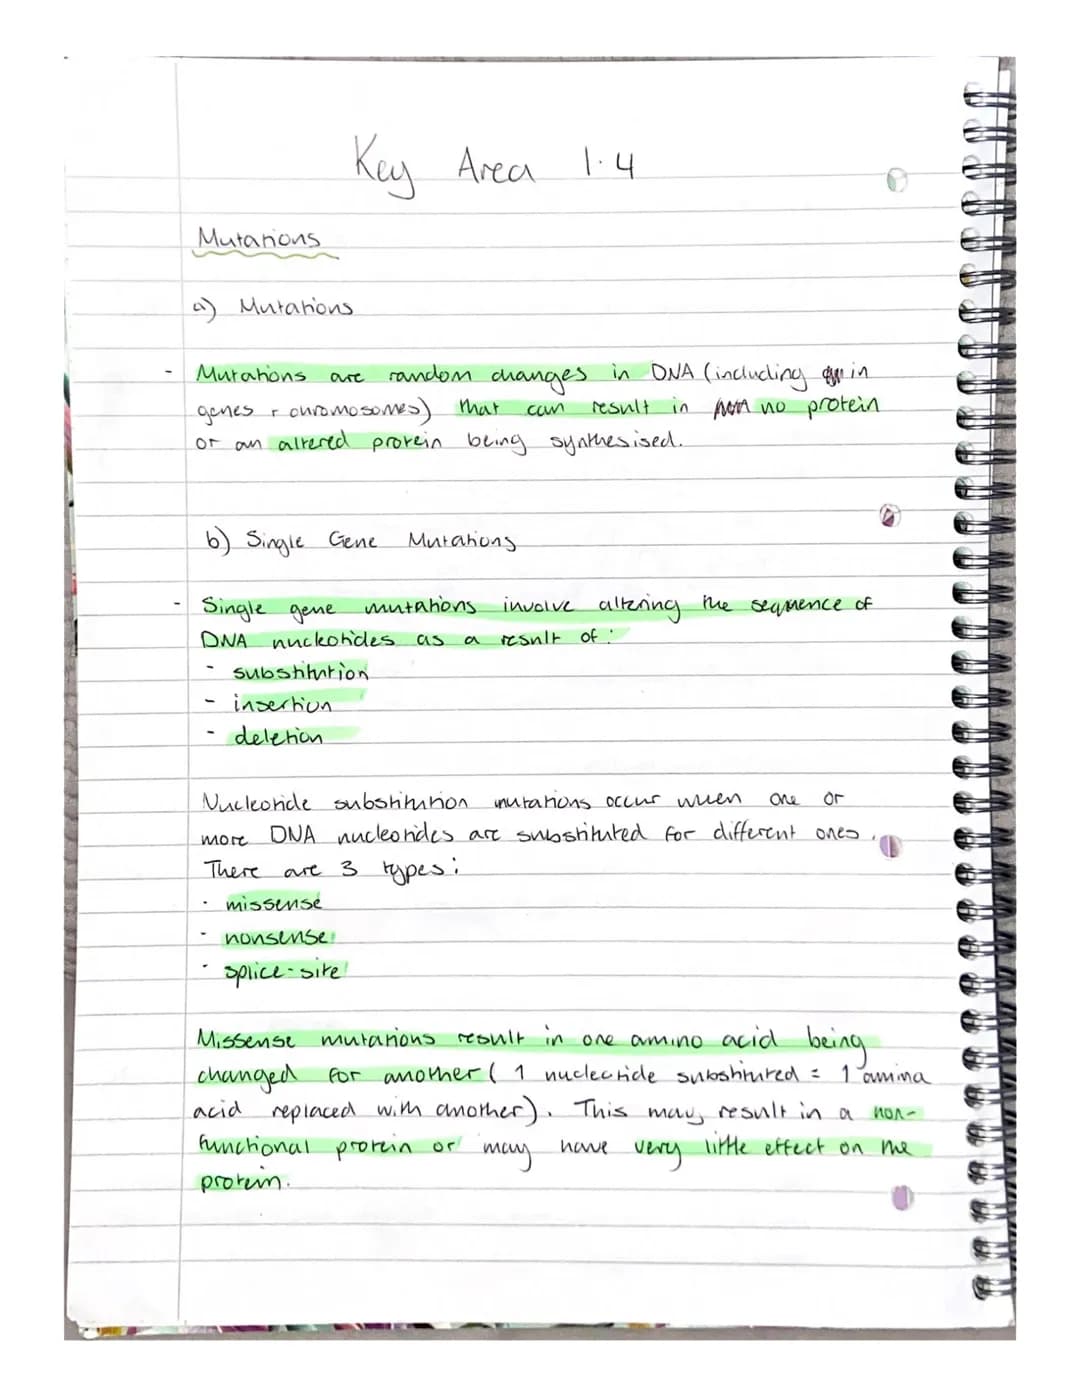 Key Area 1.4
Mutations
a) Mutations
- Mutations are random changes in DNA (including in
genes + chromosomes) that can result in no protein
or an altered protein being synthesised.
b) Single Gene Mutations
- Single gene mutations involve altering the sequence of
DNA nucleotides as a result of:
- substitution
- insertion
- deletion
Nucleotide substitution mutations occur when one or
more DNA nucleotides are substituted for different ones.
There are 3 types:
· missense
· nonsense
· splice-site
Missense mutations result in one amino acid being
changed for another ( 1 nucleotide substituted = 1 amino
acid replaced with another). This may result in a non-
functional protein or may have very little effect on the
protein.